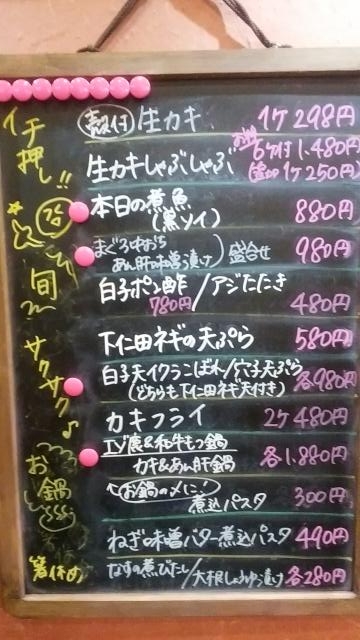 イチ押し!!
殻付 生カキ 1ケ298円
生カキしゃぶしゃぶ 6ケ付1,480円
1ケ250円)
本日の煮魚
(黒ソイ) 880円
まぐろ中おち
あん肝味噌漬け 盛合せ 980円
旬
白子ポン酢/アジたたき
780円 480円
下仁田ネギの天ぷら 580円
サクサク♪
白子天イクラこぼれ/穴子天ぷら
(どちらも下仁田ネギ天付き) 各980円
カキフライ 2ケ480円
お鍋
エゾ鹿&和牛もつ鍋
カキ&あん肝鍋 各1,880円
お鍋の〆に!
煮込パスタ 300円
ねぎ味噌バター煮込パスタ 490円
箸休め
なすの煮びたし/大根しょうゆ漬け 各280円